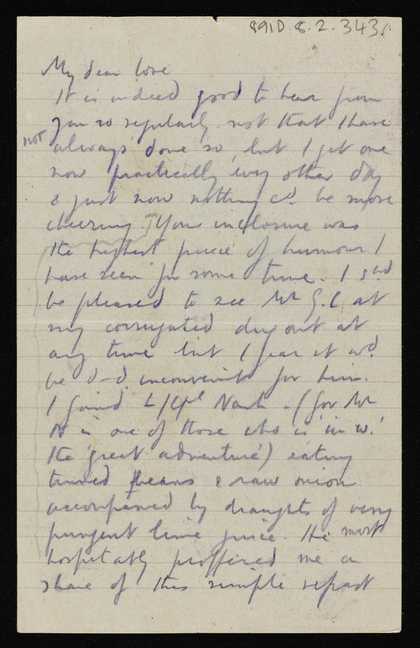 891D.8.2.343/
My dear love
It is indeed good to hear from
you so regularly not that I have
not
always done so, but I get one
now practically every other day
& just now nothing cd. be more
cheering. Your inclosure was
the highest piece of humour I
have seen for some time. I shd
be pleased to see Mr G.C. at
my corrugated dug out at
any time but I fear it wd.
be d–d inconvenient for him.
I found L/Cpl Nash (for Mr
N is one of those who is in w.
the 'great adventure') eating
tinned beans & raw onion
accompanied by draughts of very
pungent lime juice. He most
hospitably proffered me a
share of this simple repast